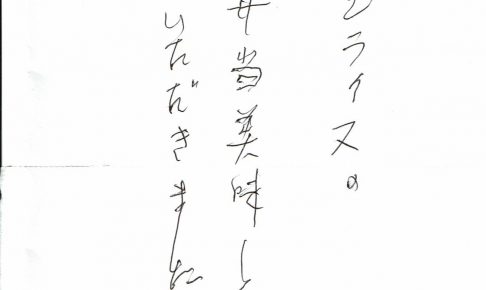 ライスの
弁当美味し
いただきました